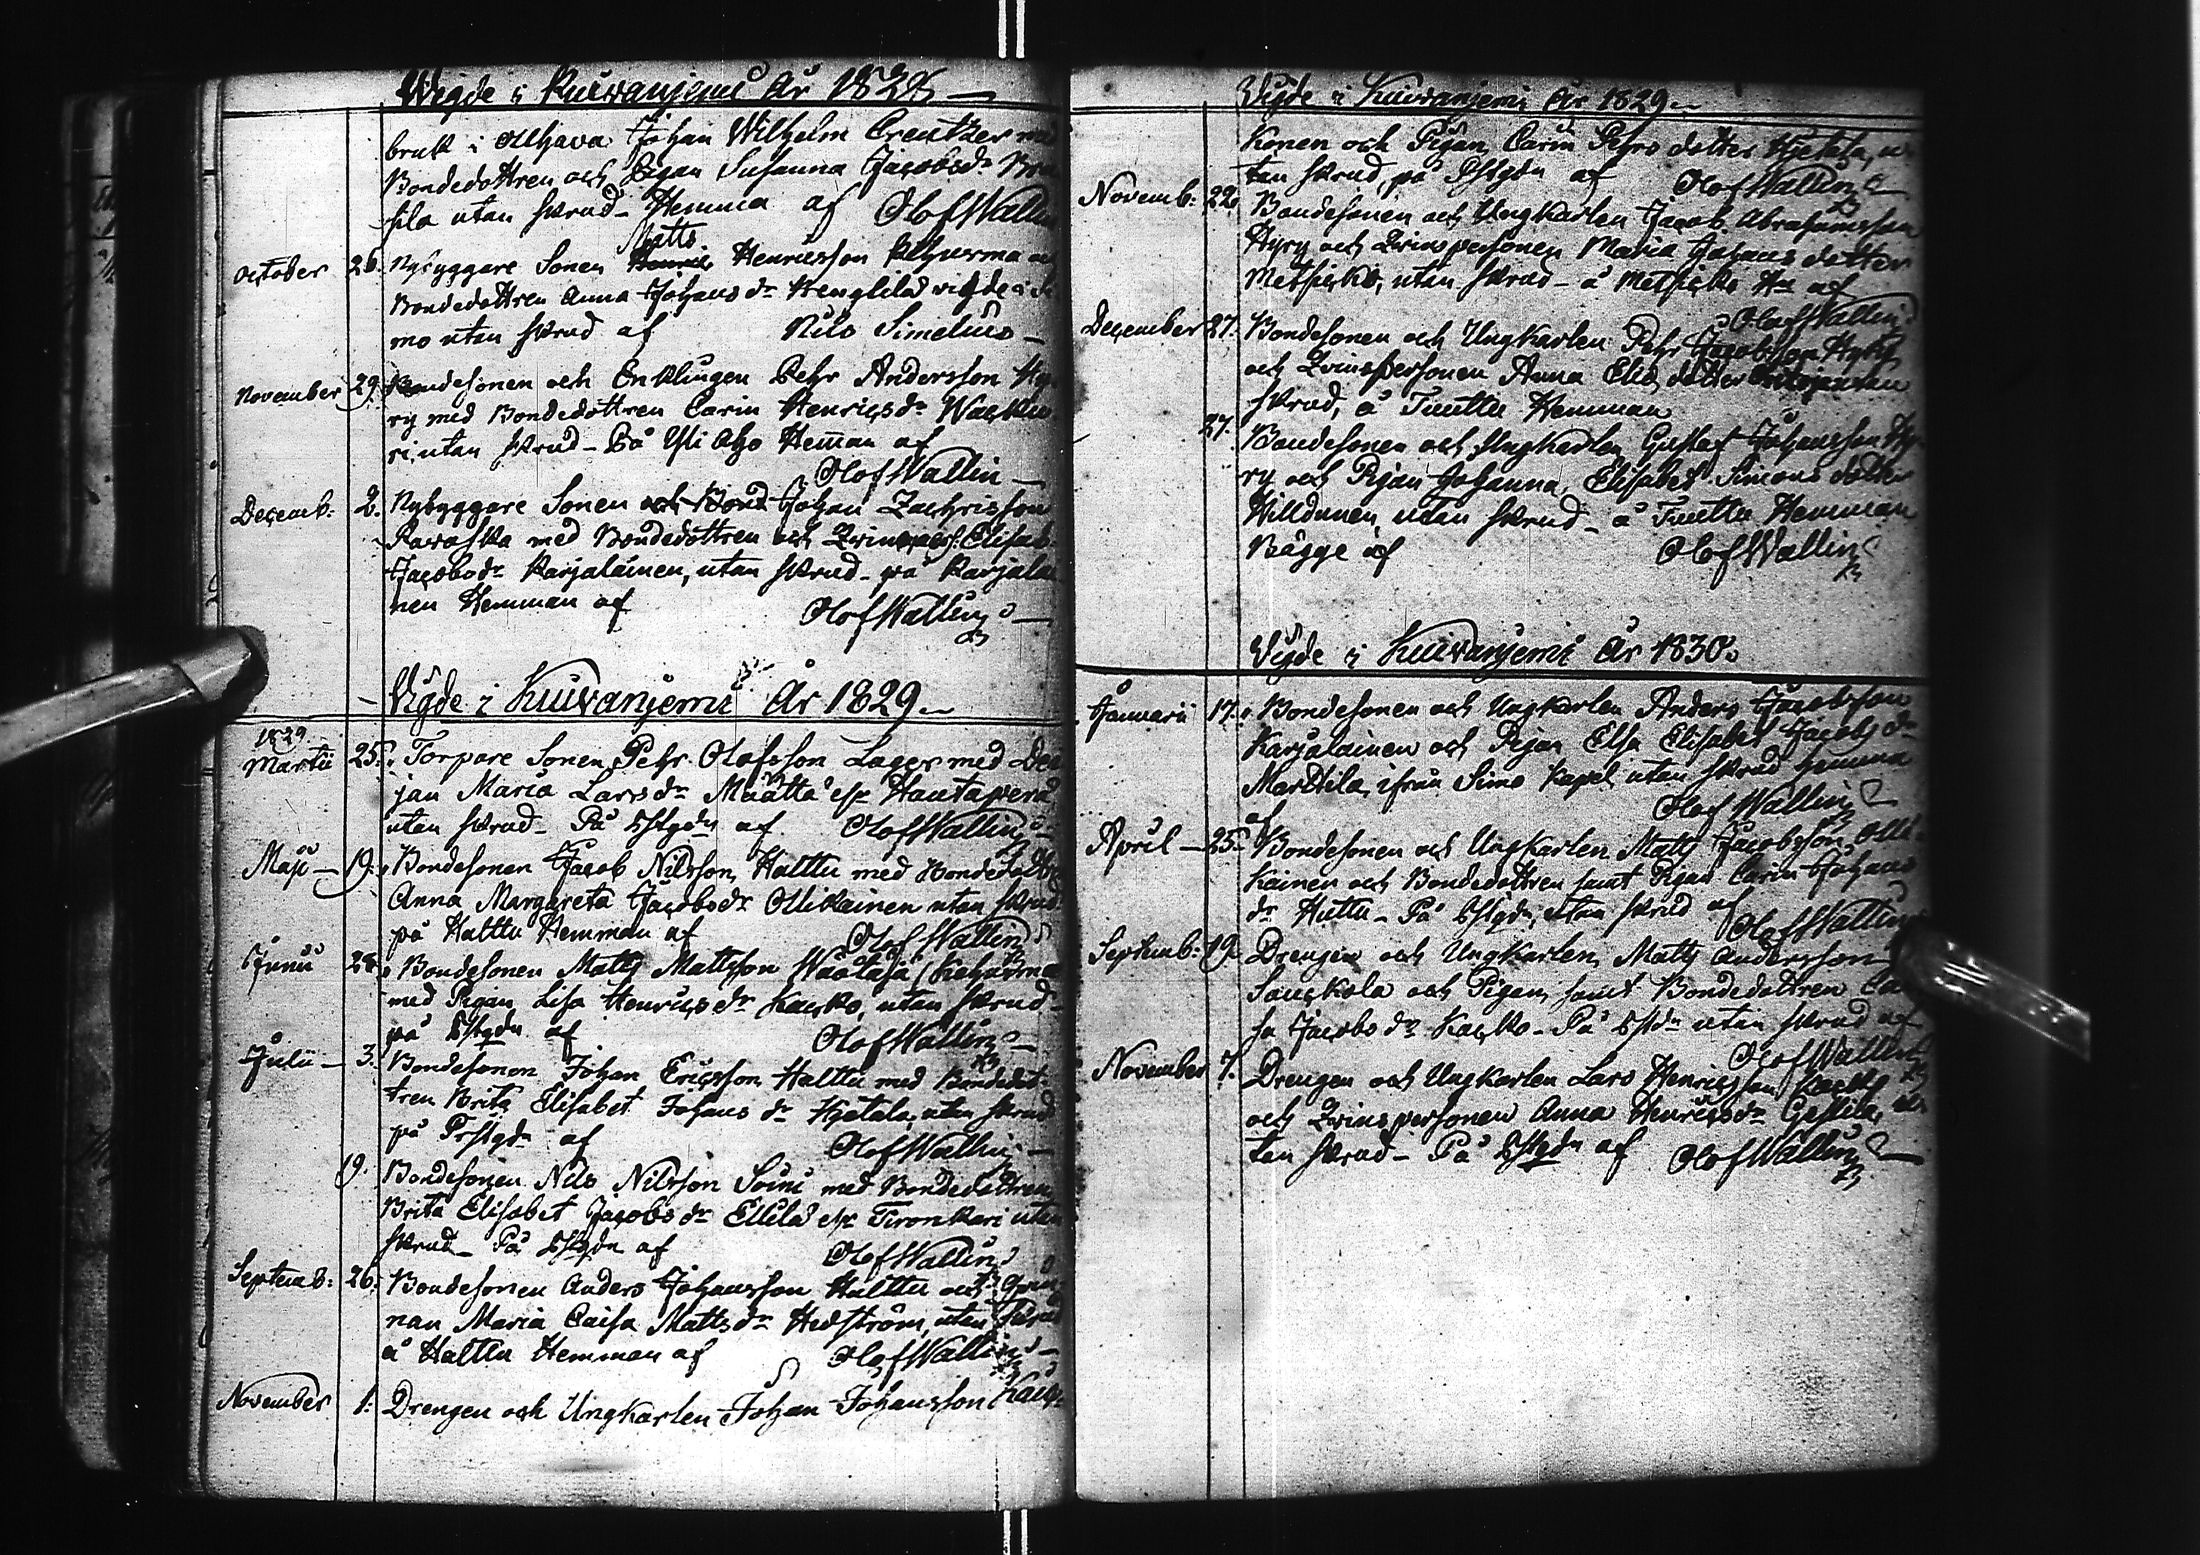 Wigde i Kuivanjemi År 1828
bruk i Olhava Johan Wilhelm Creutzer med
Bondedottren och Pigan Susanna Jacobsdr
sila utan skrud - Hemma af Olof Wallin
Matts
October 26. Nybyggare Sonen Henric Henricsson
Bondedottren Anna Johansdr Hengelä wigde i Si
mo utan skrud af Nils Simelius
November 29. Bondesonen och Enklingen Pehr Andersson Hy
ry med Bondedottren Carin Henricsdr Wacku
ri utan skrud - På Yli Aho Heman af
Olof Wallin
Decemb: 2. Nybyggare Sonen och Bond Johan Zachrisson
Rawaska med Bondedottren och Qvinspers. Elisab.
Jacobsdr Karjalainen, utan skrud - på Karjalai
nen Hemman af Olof Wallin
Vigde i Kuivanjemi År 1829
1829
Martii 25. Torpare Sonen Pehr Olofsson Lager med De
jan Maria Larsdr Määttä ell. Hautaperä
utan skrud - På Pstgdn af Olof Wallin
Maji 19. Bondesonen Jacob Nilsson Halttu med Bondedottr
Anna Margareta Jacobsdr Ollikainen utan skrud
på Halttu Hemman af Olof Wallin
Junii 28. Bondesonen Matts Mattsson Wäätäjä (Kehusmaa
med Pigan Lisa Henricsdr Kacko, utan skrud
på Pstgdn af Olof Wallin
Julii 3. Bondesonen Johan Ericsson Halttu med Bondedot
tren Brita Elisabet Johansdr Hjetala, utan skrud
på Prstgdn af Olof Wallin
19. Bondesonen Nils Nilsson Soini med Bondedottren
Brita Elisabet Jacobsdr Ellilä ell. Tironkari utan
skrud - På Pstgdn af Olof Wallin
Septemb: 26. Bondesonen Anders Johansson Halttu och
nan Maria Caisa Mattsdr Hedström, utan skrud
å Halttu Hemman af Olof Wallin
November 1. Drengen och Ungkarlen Johan Johansson
Vigde i Kuivanjemi År 1829
konen och Pigan Carin Pehrs dotter Hjetala, u
tan skrud, på Pstgdn af Olof Wallin
Novemb: 22. Bondesonen och Ungkarlen Jacob Abrahamsson
Hyry och Qvinspersonen Maria Johans dotter
Metsickö, utan skrud - å Metsickö Hn af
Olof Wallin
December 27. Bondesonen och Ungkarlen Pehr Jacobsson Hyry
och Qvinspersonen Anna Elis dotter
skrud, å Tuuttu Hemman
27. Bondesonen och Ungkarlen Gustaf Johansson Hy
ry och Pigan Johanna Elisabet Simons dotter
Willdunen, utan skrud - å Tuuttu Hemman
Bägge af Olof Wallin
Vigde i Kuivanjemi År 1830.
Januarii 17. Bondesonen och Ungkarlen Anders Jacobsson
Karjalainen och Pigan Elsa Elisabet Jacobsdr
Marttila, ifrån Simo Kapel utan skrud hemma
af Olof Wallin
April 25. Bondesonen och Ungkarlen Matts Jacobsson Olli
kainen och Bondedottren samt Pigan Carin Johans
dr Huttu - På Pstgdn, utan skrud af
Olof Wallin
Septemb: 19. Drengen och Ungkarlen Matts Andersson
Sauckola och Pigan, samt Bondedottren Cai
sa Jacobsdr Kacko - På Pstdn utan skrud af
Olof Wallin
November 7. Drengen och Ungkarlen Lars Henricsson Kacko
och Qvinspersonen Anna Henricsdr Gestila, u
tan skrud - På Pstgdn af Olof Wallin